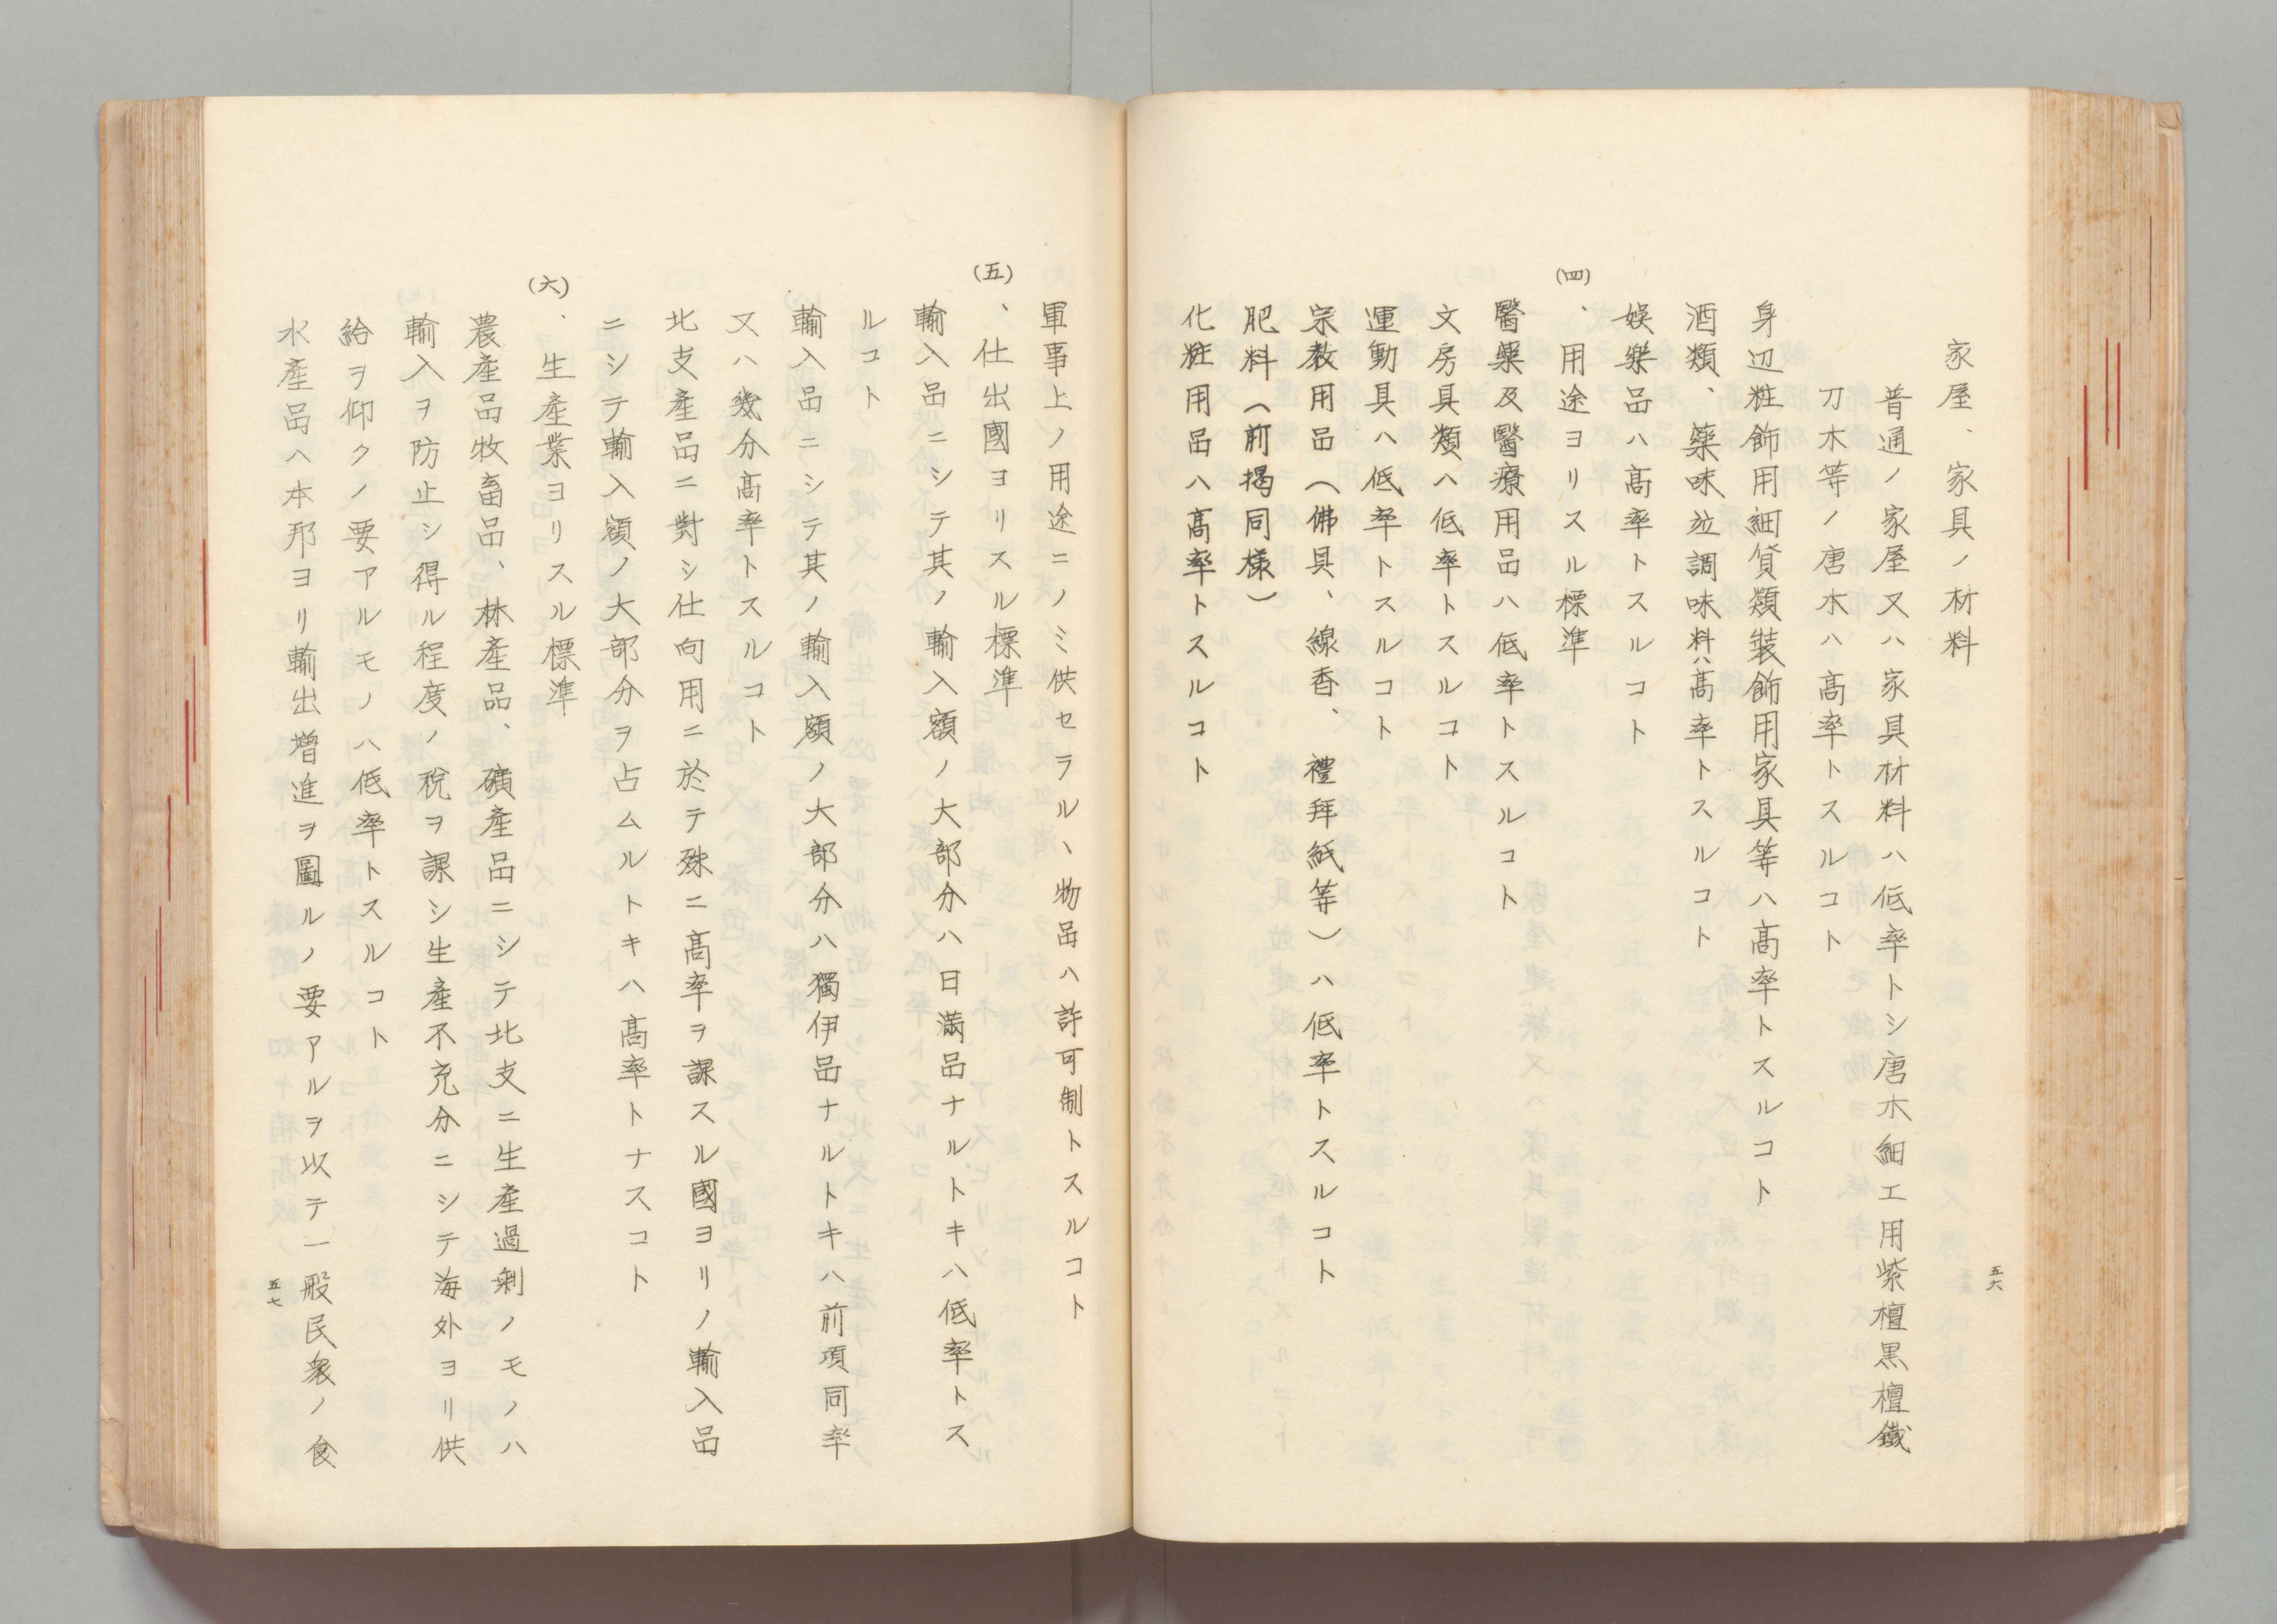 家屋、家具ノ材料
普通ノ家屋又ハ家具材料ハ低率トシ唐木細工用紫檀黒檀鐵
刀木等ノ唐木ハ高率トスルコト
身辺粧飾用細貨類裝飾用家具等ハ高率トスルコト
酒類、藥味竝調味料ハ高率トスルコト
娯樂品ハ高率トスルコト
(四)、用途ヨリスル標準
醫藥及醫療用品ハ低率トスルコト
文房具類ハ低率トスルコト
運動具ハ低率トスルコト
宗教用品(佛具、線香、禮拜紙等)ハ低率トスルコト
肥料(前揭同様)
化粧用品ハ高率トスルコト
五六
軍事上ノ用途ニノミ供セラルヽ物品ハ許可制トスルコト
(五)、仕出國ヨリスル標準
輸入品ニシテ其ノ輸入額ノ大部分ハ日滿品ナルトキハ低率トス
ルコト
輸入品ニシテ其ノ輸入額ノ大部分ハ獨伊品ナルトキハ前項同率
又ハ幾分高率トスルコト
北支產品ニ對シ仕向用ニ於テ殊ニ高率ヲ課スル國ヨリノ輸入品
ニシテ輸入額ノ大部分ヲ占ムルトキハ高率トナスコト
(六)、生產業ヨリスル標準
農產品牧畜品、林產品、礦產品ニシテ北支ニ生產過剩ノモノハ
輸入ヲ防止シ得ル程度ノ稅ヲ課シ生產不充分ニシテ海外ヨリ供
給ヲ仰クノ要アルモノハ低率トスルコト
水產品ハ本邦ヨリ輸出增進ヲ圖ルノ要アルヲ以テ一般民衆ノ食
五七